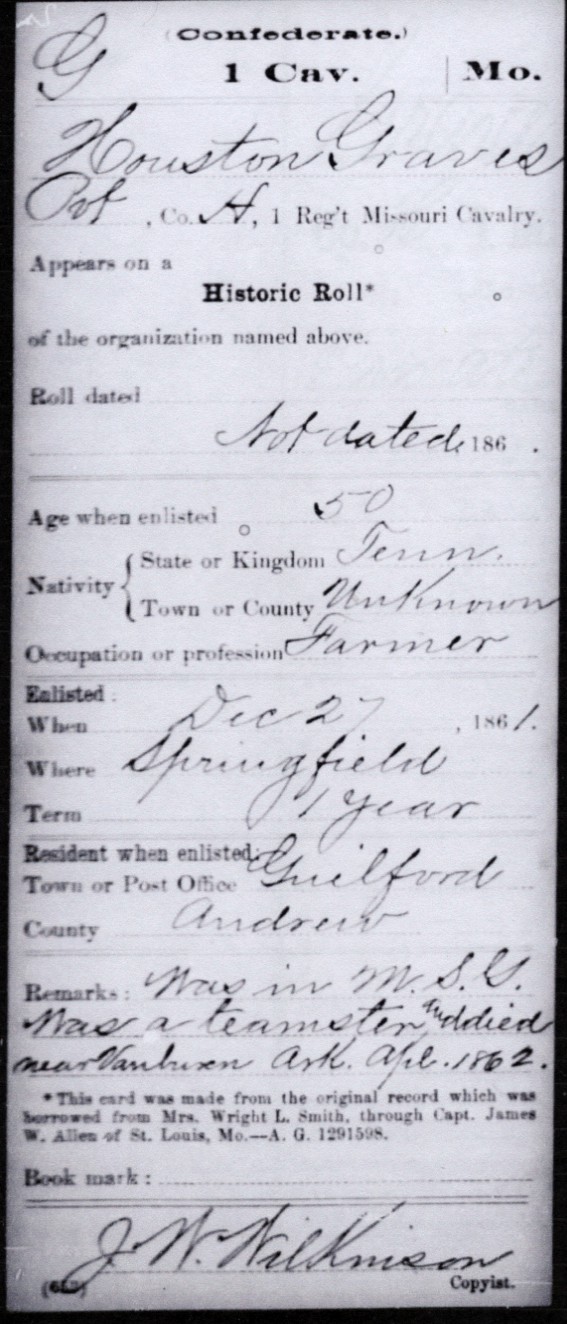 (Confederate.)
G 1 Cav. Mo.
Houston Graves
Pvt, Co. H, 1 Reg't Missouri Cavalry.
Appears on a
Historic Roll*
of the organization named above.
Roll dated
Not dated, 186 .
Age when enlisted 50
Nativity
State or Kingdom Tenn.
Town or County Unknown
Occupation or profession Farmer
Enlisted:
When Dec 27, 1861.
Where Springfield
Term 1 Year
Resident when enlisted:
Town or Post Office Guilford
County Andrew
Remarks: Was in M.S.G.
Was a teamster, and died
near Vanburen Ark. Apl. 1862.
*This card was made from the original record which was
borrowed from Mrs. Wright L. Smith, through Capt. James
W. Allen of St. Louis, Mo.—A. G. 1291598.
Book mark:
J. W. Wilkinson
Copyist.